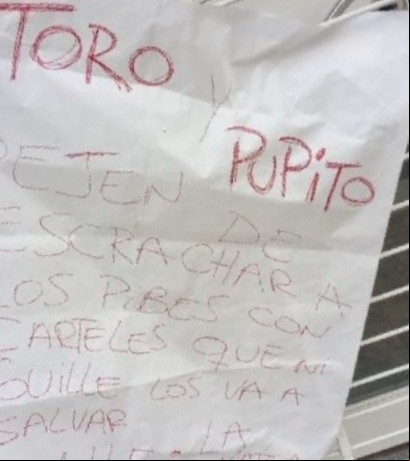 TORO
Y
PUPiTO
DEJEN DE
ESCRACHAR A
LOS PiBES CON
CARTELES QUE Ni
LOS VA A
SALVAR LA